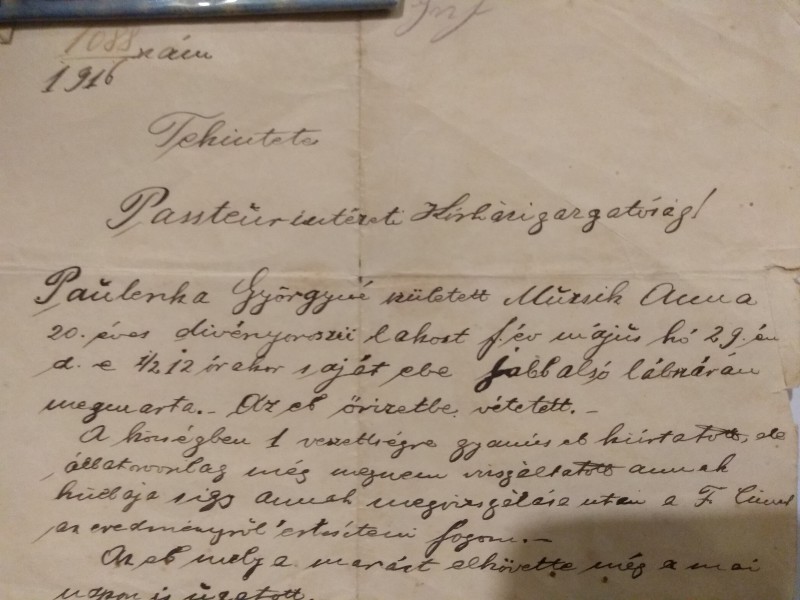 1088 szám
1916
Tekintetes
Passteur intézeti Kórházigazgatóság!
Paŭlenka Györgyné született Mŭzsik Anna
20. éves divényoroszii lakost f. év május hó 29.én
d. e ½12 órakor saját ebe jobb alsó lábszárán
megmarta.- Az eb őrizetbe vétetett.-
A községben 1 veszettségre gyanús eb kiirtatott, de
állatorvosilag még megnem vizsgáltatott annak
hullája s igy annak megvizsgálása után a T. Cimet
az eredményről értesiteni fogom.-
Az eb mely a marást elkövette még a mai
napon is